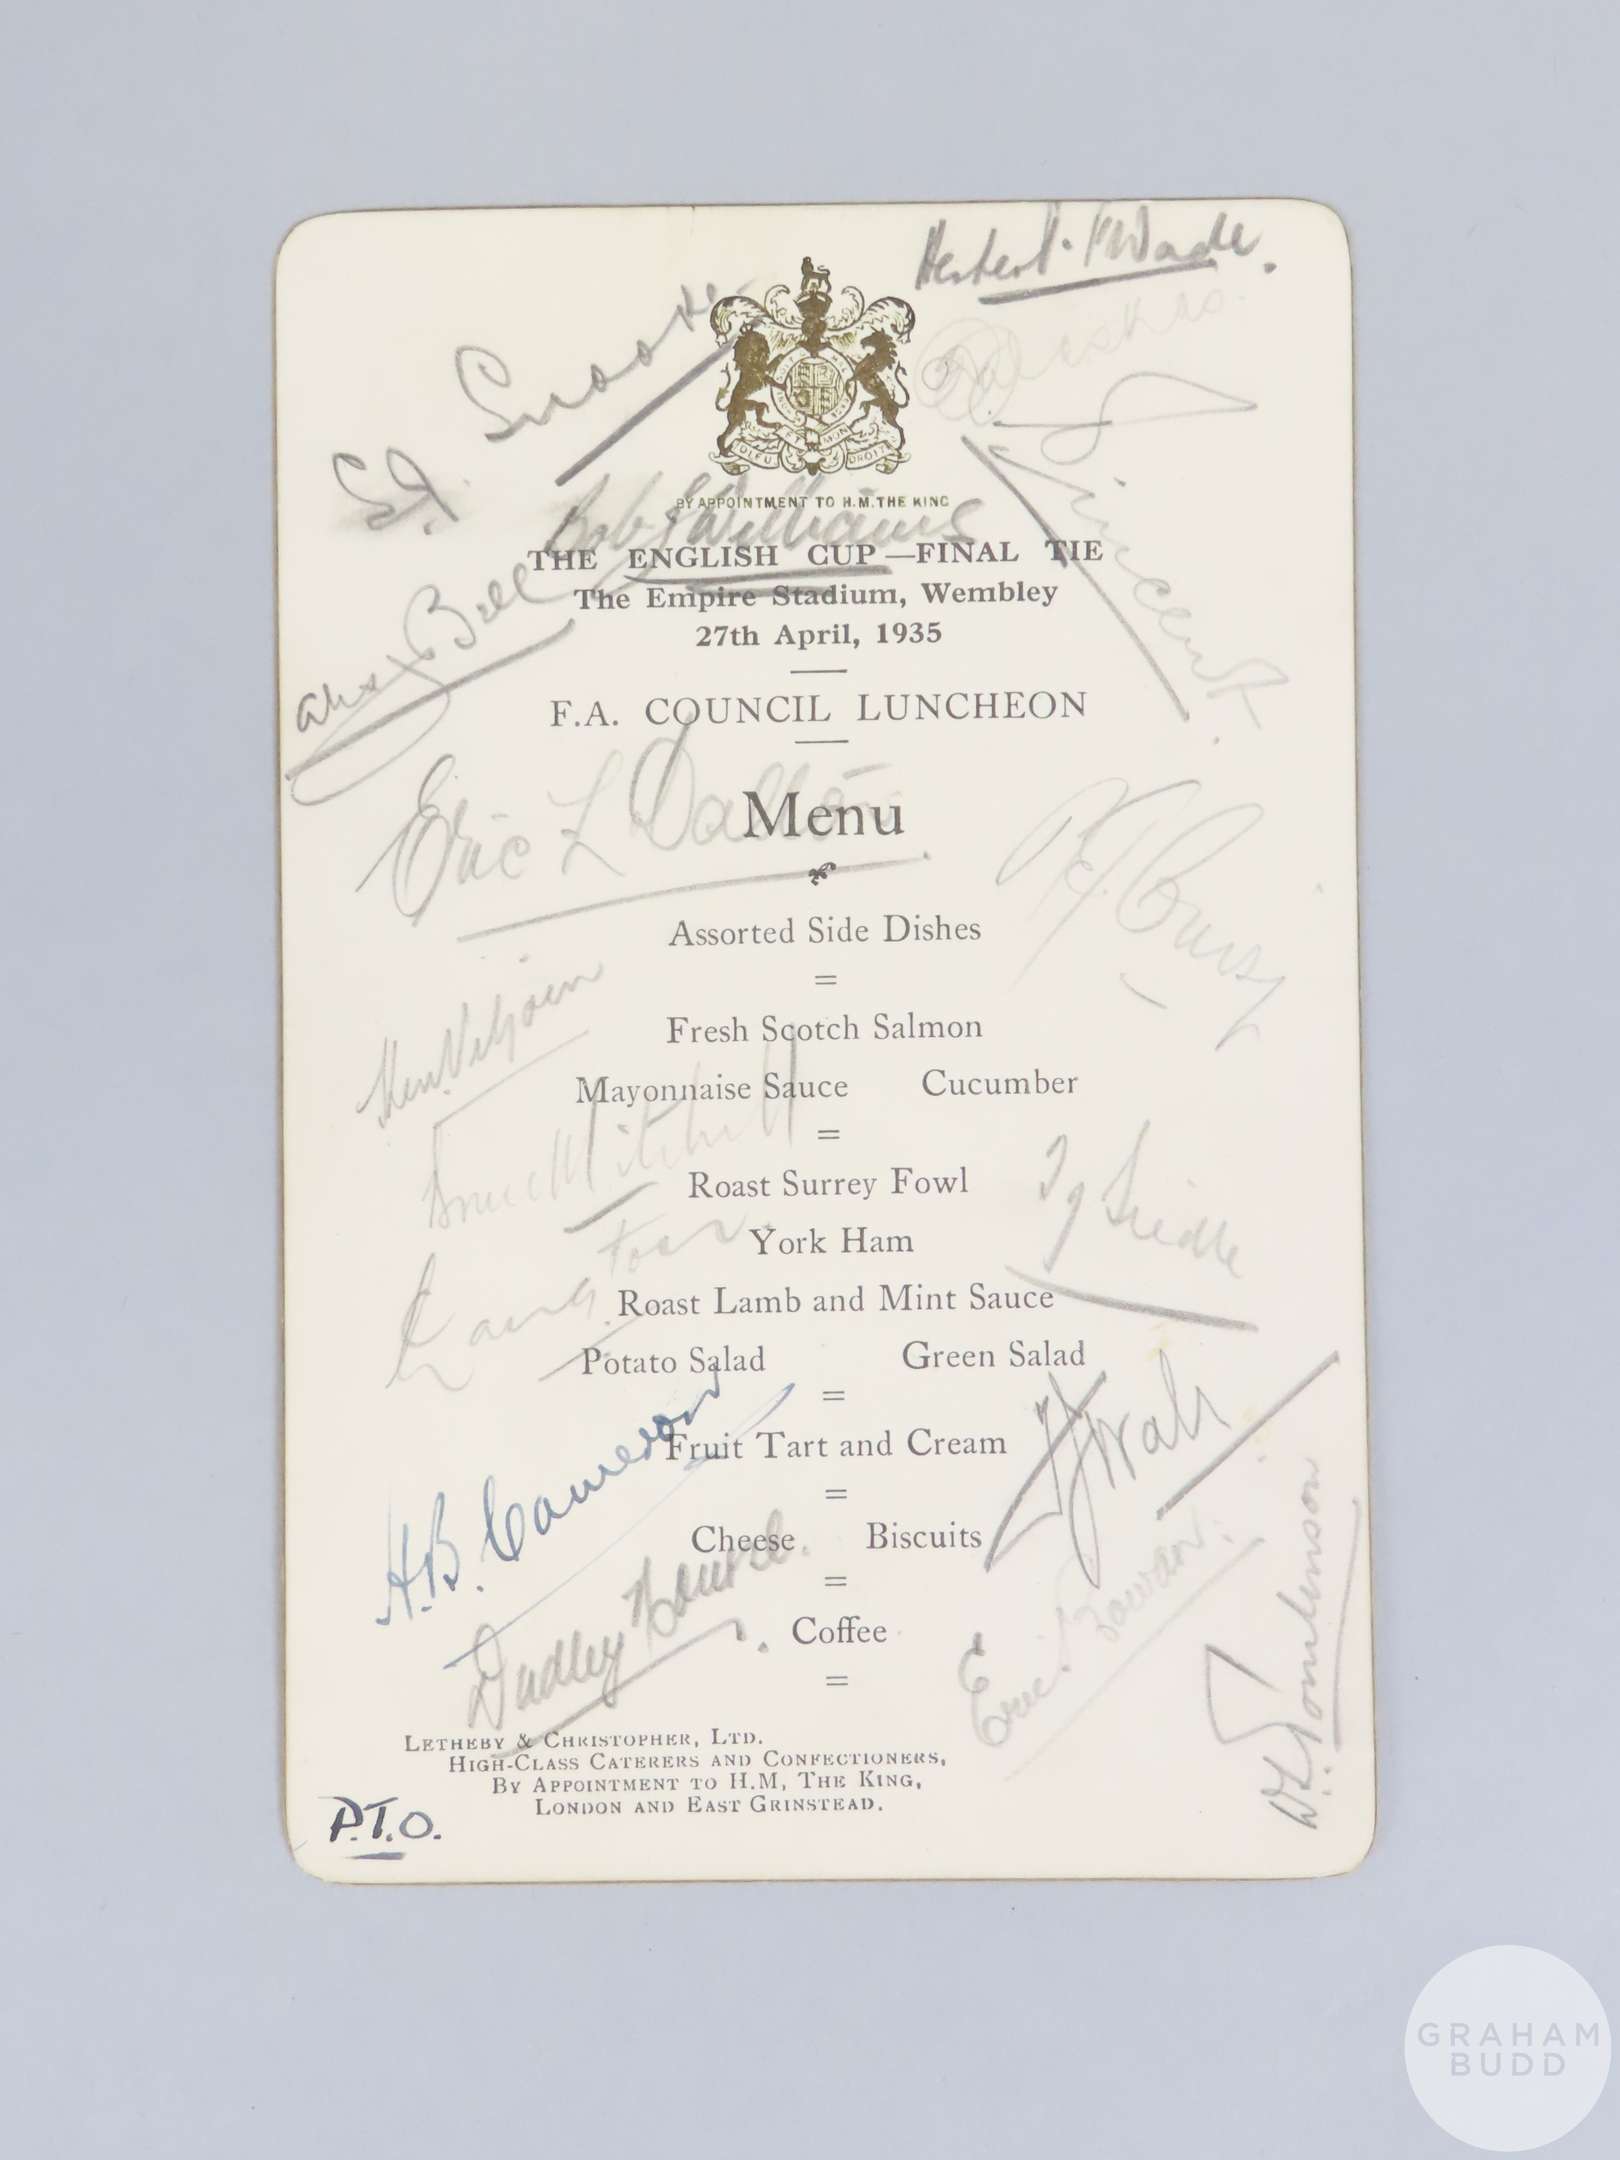 Herbert. F Wade.
S.I. Snooke.
BY APPOINTMENT TO H.M. THE KING
Bob Williams
THE ENGLISH CUP—FINAL TIE
The Empire Stadium, Wembley
27th April, 1935
Vincent.
Bell
F.A. COUNCIL LUNCHEON
Eric L Dalton
Menu
Assorted Side Dishes
=
Ken Viljoen
Fresh Scotch Salmon
Mayonnaise Sauce Cucumber
=
Bruce Mitchell
Roast Surrey Fowl
York Ham
Langton.
Roast Lamb and Mint Sauce
Potato Salad Green Salad
=
H.B. Cameron
Fruit Tart and Cream
=
Cheese Biscuits
=
Dudley Nourse.
Eric Rowan.
D.S. Tomlinson
Coffee
=
LETHEBY & CHRISTOPHER, LTD.
HIGH-CLASS CATERERS AND CONFECTIONERS,
BY APPOINTMENT TO H.M, THE KING,
LONDON AND EAST GRINSTEAD.
P.T.O.
GRAHAM
BUDD